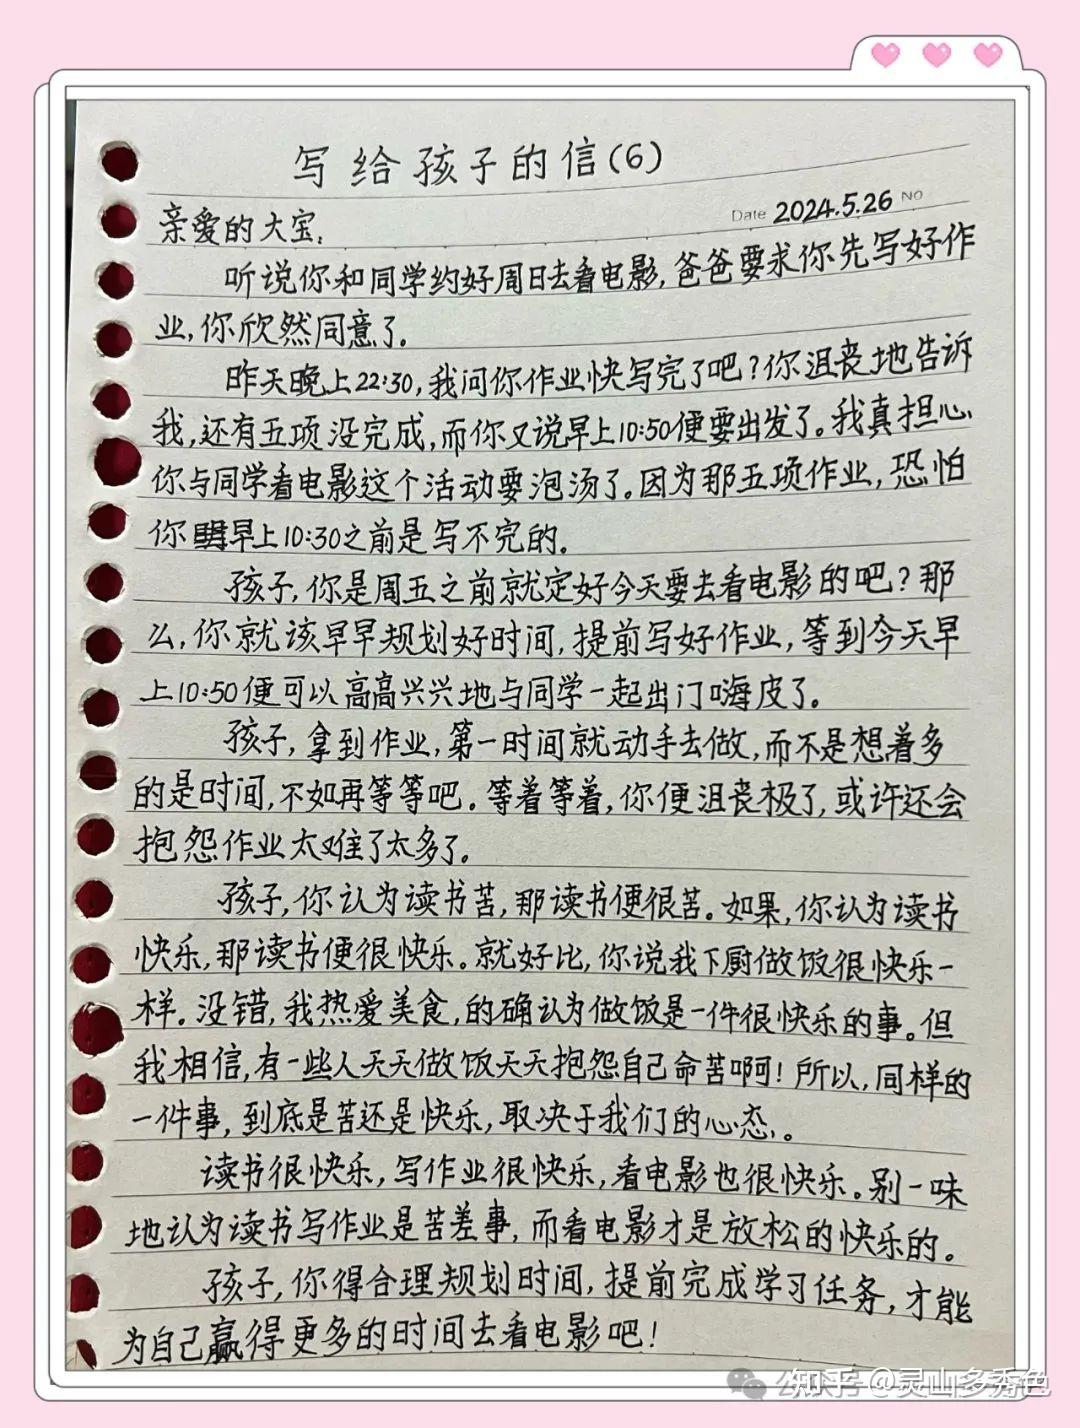 写给孩子的信(6)
Date 2024.5.26 No
亲爱的大宝:
听说你和同学约好周日去看电影,爸爸要求你先写好作
业,你欣然同意了.
昨天晚上22:30,我问你作业快写完了吧?你沮丧地告诉
我,还有五项没完成,而你又说早上10:50便要出发了。我真担心
你与同学看电影这个活动要泡汤了。因为那五项作业,恐怕
你明早上10:30之前是写不完的.
孩子,你是周五之前就定好今天要去看电影的吧?那
么,你就该早早规划好时间,提前写好作业,等到今天早
上10:50便可以高高兴兴地与同学一起出门嗨皮了。
孩子,拿到作业,第一时间就动手去做,而不是想着多
的是时间,不如再等等吧。等着等着,你便沮丧极了,或许还会
抱怨作业太难了太多了。
孩子,你认为读书苦,那读书便很苦。如果,你认为读书
快乐,那读书便很快乐。就好比,你说我下厨做饭很快乐一
样。没错,我热爱美食,的确认为做饭是一件很快乐的事。但
我相信,有一些人天天做饭天天抱怨自己命苦啊!所以,同样的
一件事,到底是苦还是快乐,取决于我们的心态,。
读书很快乐,写作业很快乐,看电影也很快乐。别一味
地认为读书写作业是苦差事,而看电影才是放松的快乐的。
孩子,你得合理规划时间,提前完成学习任务,才能
为自己赢得更多的时间去看电影吧!
知乎 @灵山多秀色